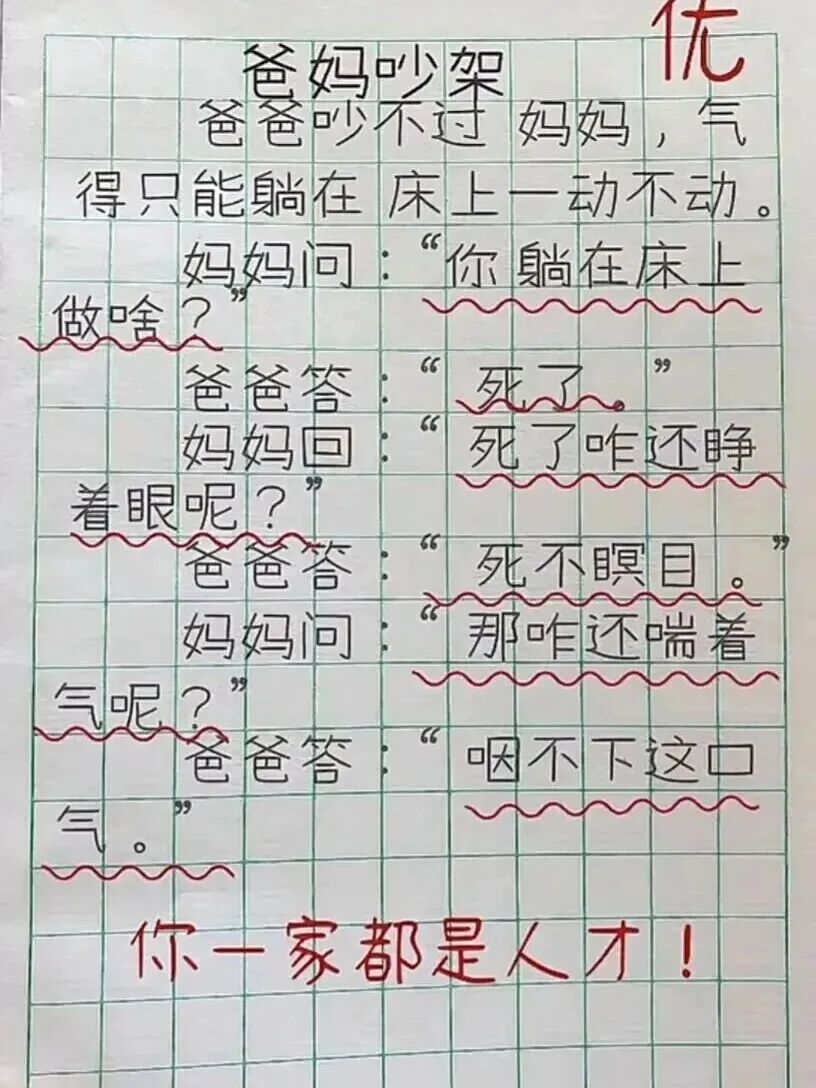 优
爸妈吵架
爸爸吵不过 妈妈，气
得只能躺在 床上一动不动。
妈妈问：“你躺在床上
做啥？”
爸爸答：“死了。”
妈妈回：“死了咋还睁
着眼呢？”
爸爸答：“死不瞑目。”
妈妈问：“那咋还喘着
气呢？”
爸爸答：“咽不下这口
气。”
你一家都是人才！